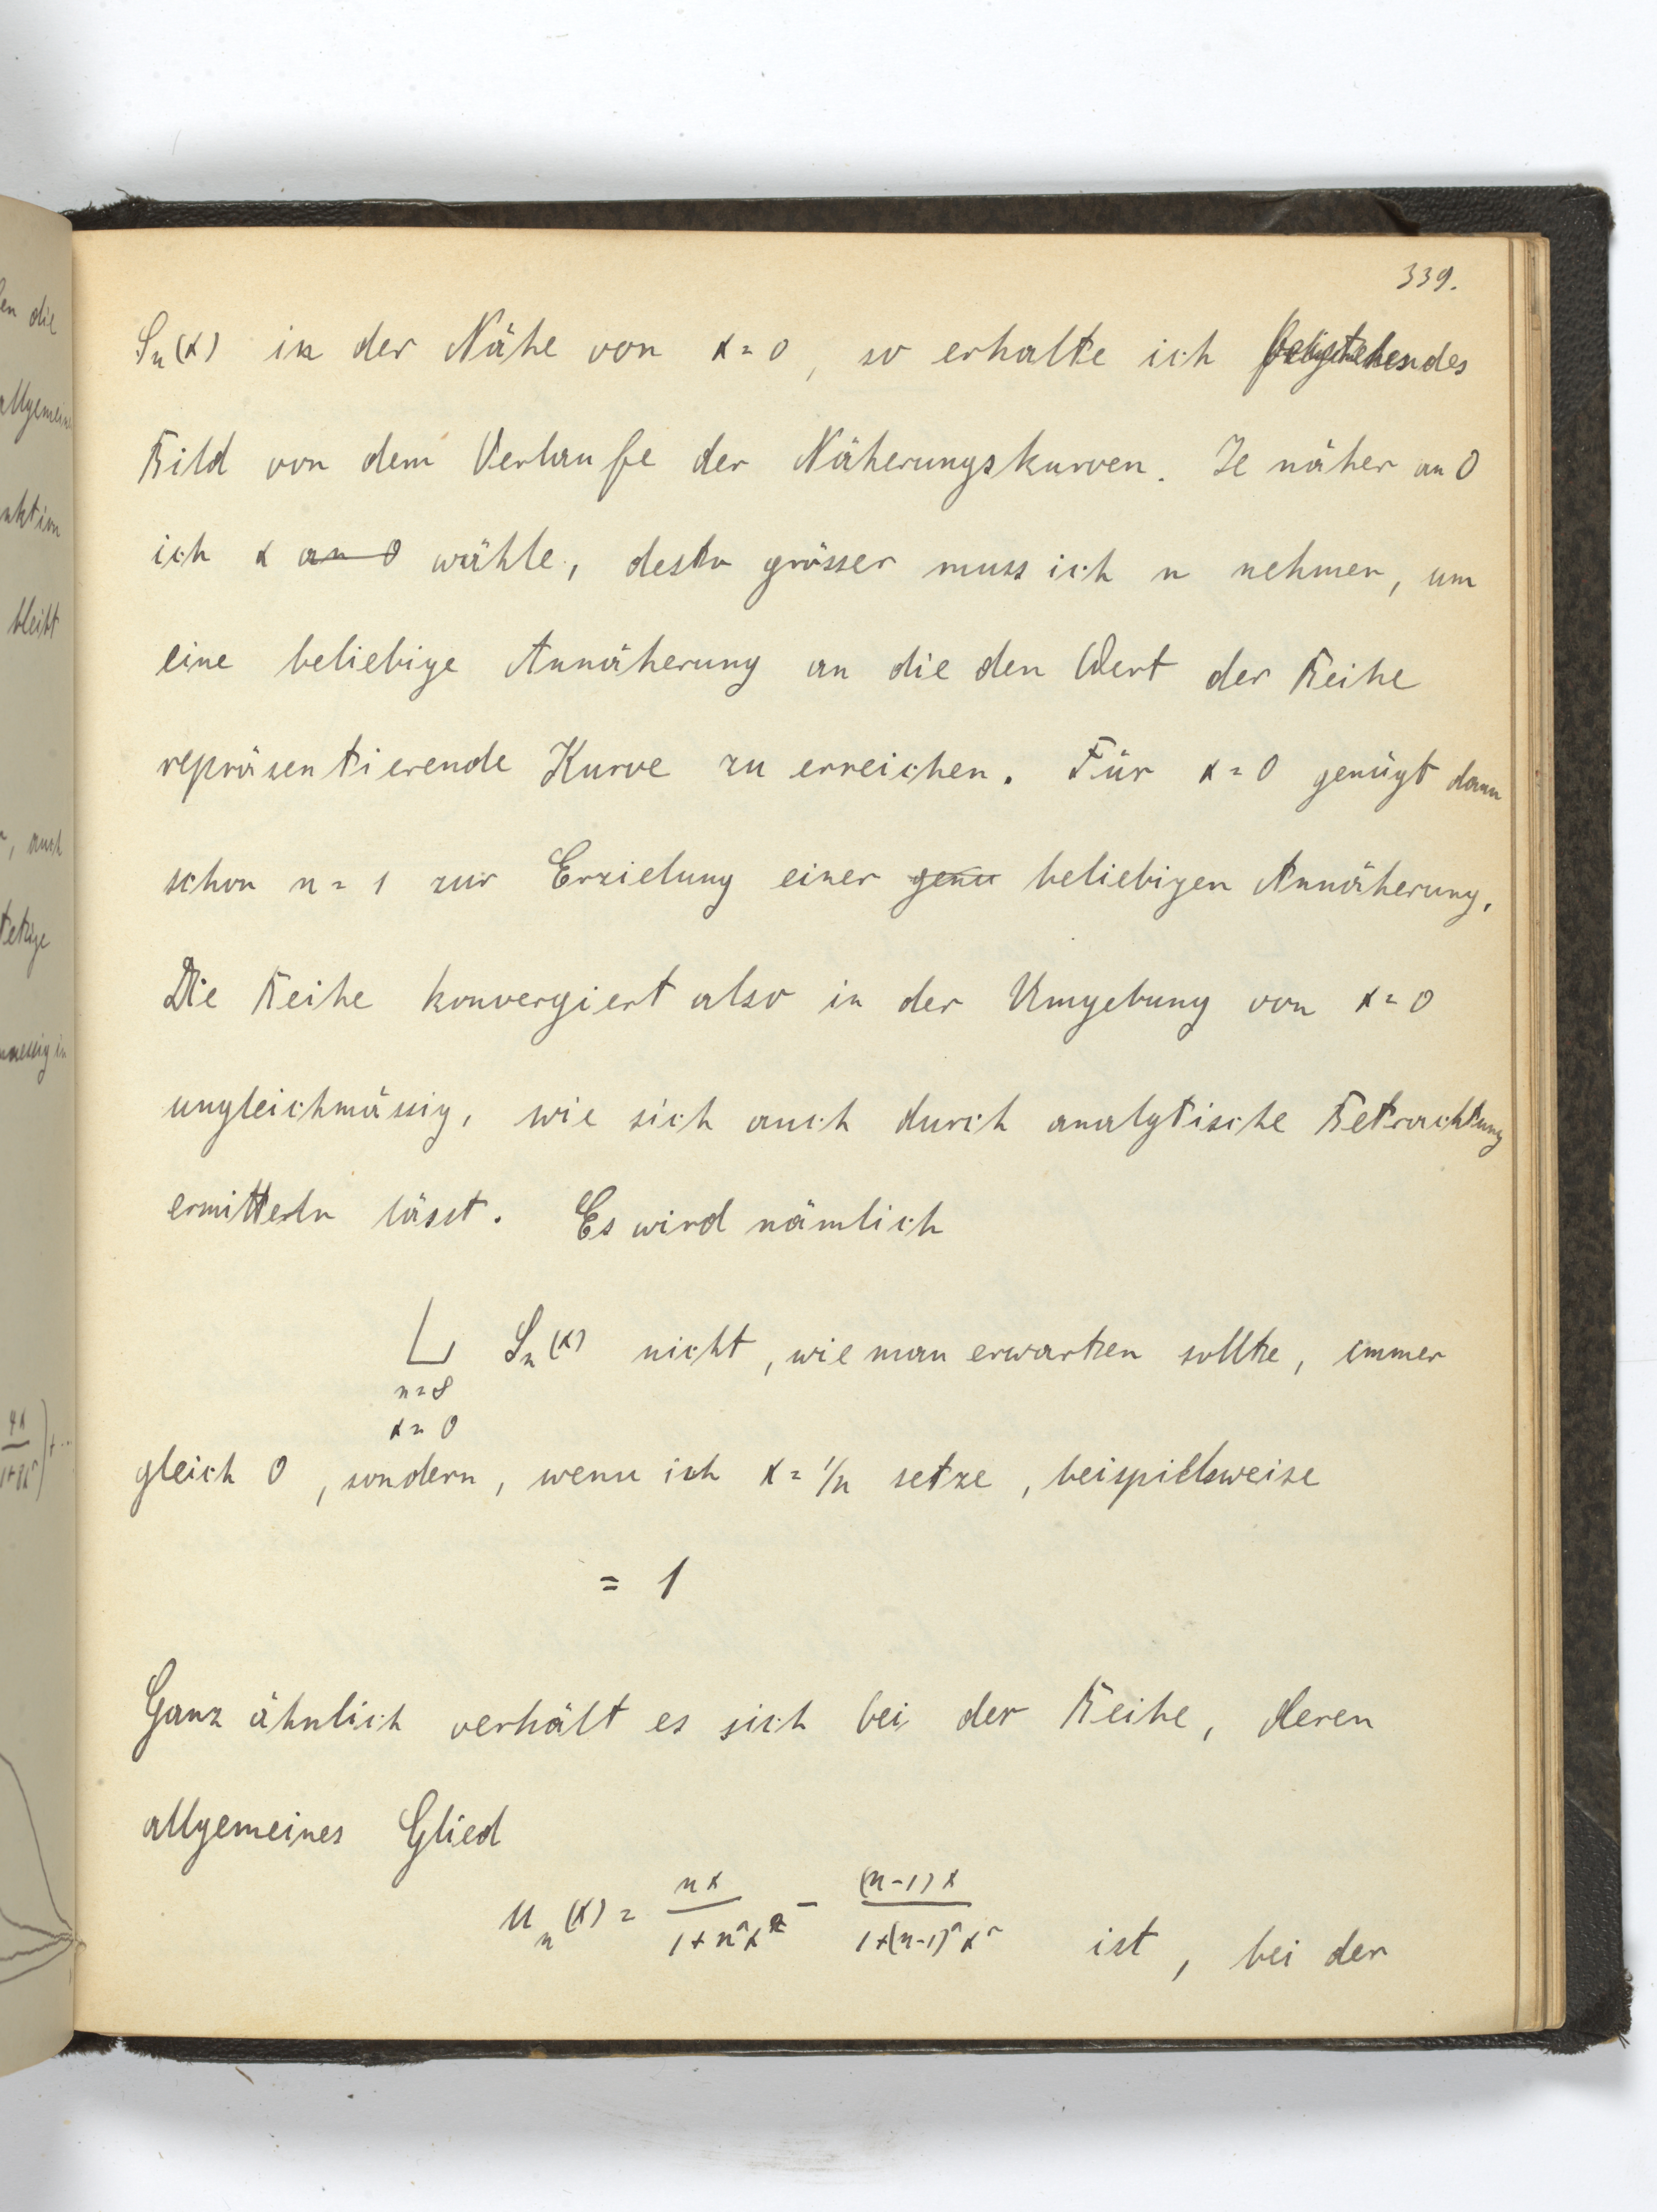 en die
allgemein
nktion
bleibt
, auch
tetige
maessig in
4x
339.
S_n(x) in der Nähe von x = 0, so erhalte ich beistehendes
Bild von dem Verlaufe der Näherungskurven. Je näher an 0
ich x an 0 wähle, desto grösser muss ich n nehmen, um
eine beliebige Annäherung an die den Wert der Reihe
repräsentierende Kurve zu erreichen. Für x = 0 genügt dann
schon n = 1 zur Erzielung einer genu beliebigen Annäherung.
Die Reihe konvergiert also in der Umgebung von x = 0
ungleichmässig, wie sich auch durch analytische Betrachtung
ermitteln lässt. Es wird nämlich
L S_n(x) nicht, wie man erwarten sollte, immer
n = ∞
x = 0
gleich 0, sondern, wenn ich x = 1/n setze, beispielsweise
= 1
Ganz ähnlich verhält es sich bei der Reihe, deren
allgemeines Glied
u_n(x) = nx/(1+n²x²) - (n-1)x/(1+(n-1)²x²) ist, bei der